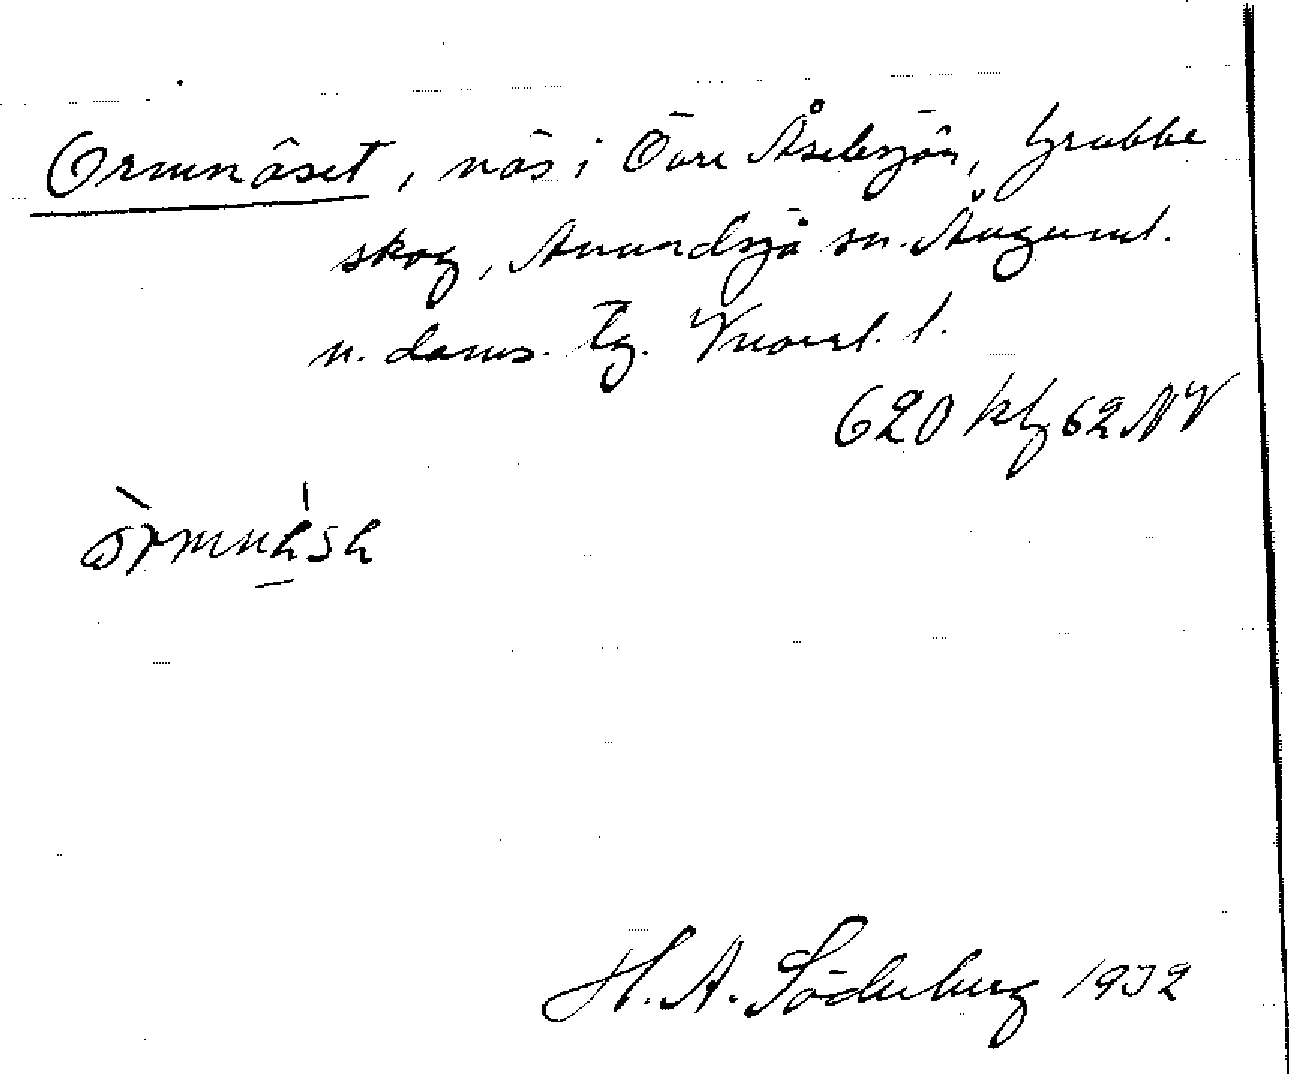 Ormnäset, näs i Övre Åselesjön, Grubbe
skog, Anundsjö sn. Ångerml.
n. doms. Tg. Vnorrl. l.
620 kbl 62 NV
H. A. Söderberg 1932